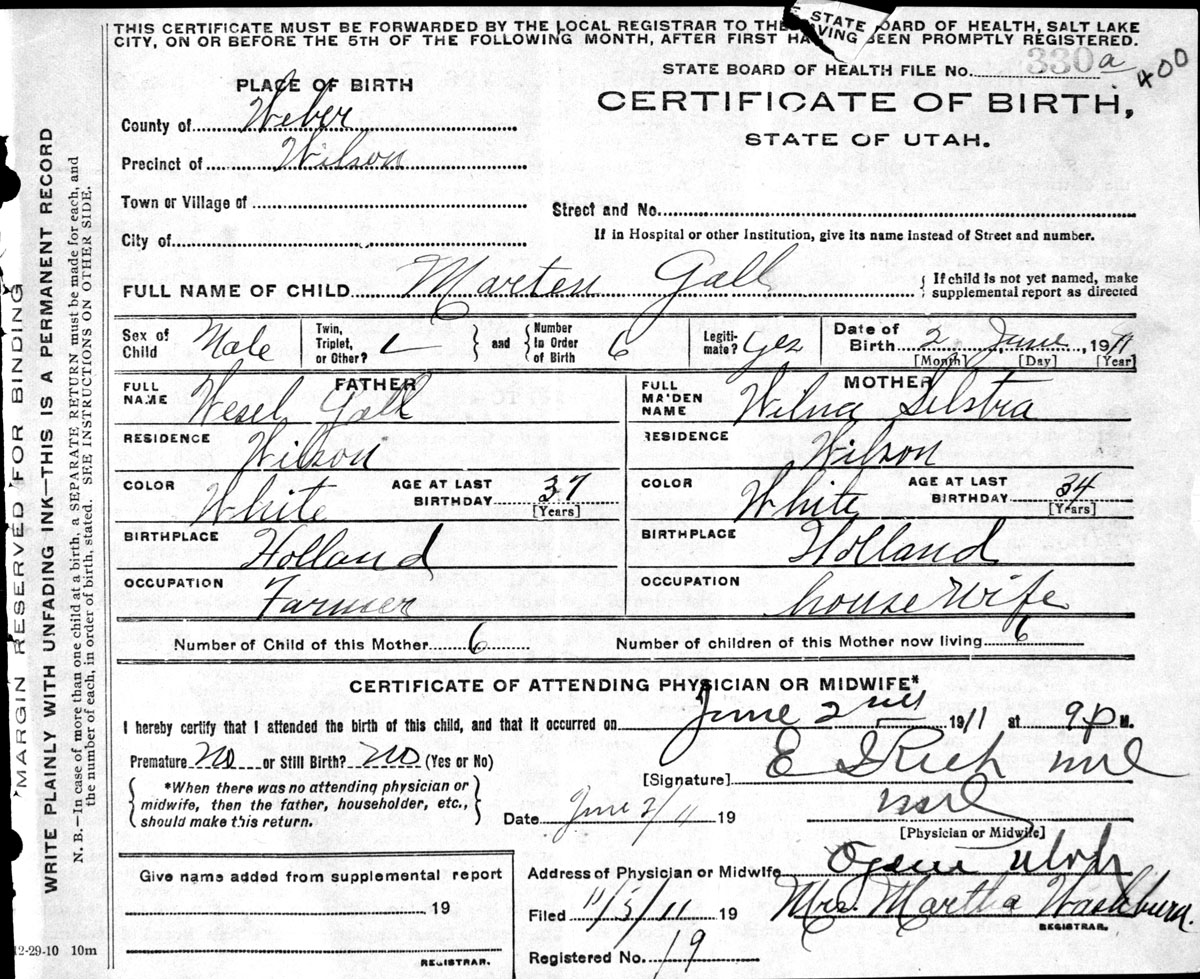 THIS CERTIFICATE MUST BE FORWARDED BY THE LOCAL REGISTRAR TO THE STATE BOARD OF HEALTH, SALT LAKE
CITY, ON OR BEFORE THE 5TH OF THE FOLLOWING MONTH, AFTER FIRST HAVING BEEN PROMPTLY REGISTERED.
STATE BOARD OF HEALTH FILE No. 330a
400
PLACE OF BIRTH
CERTIFICATE OF BIRTH,
STATE OF UTAH.
County of Weber
Precinct of Wilson
Town or Village of
Street and No.
City of
If in Hospital or other Institution, give its name instead of Street and number.
FULL NAME OF CHILD Marten Gall
If child is not yet named, make supplemental report as directed
Sex of Child Male
Twin, Triplet, or Other?
and
Number In Order of Birth 6
Legiti-mate? Yes
Date of Birth 2 June, 1911
[Month] [Day] [Year]
FATHER
FULL NAME Wesel Gall
RESIDENCE Wilson
COLOR White AGE AT LAST BIRTHDAY 37 [Years]
BIRTHPLACE Holland
OCCUPATION Farmer
MOTHER
FULL MAIDEN NAME Wilna Silstra
RESIDENCE Wilson
COLOR White AGE AT LAST BIRTHDAY 34 [Years]
BIRTHPLACE Holland
OCCUPATION house Wife
Number of Child of this Mother 6 Number of children of this Mother now living 6
CERTIFICATE OF ATTENDING PHYSICIAN OR MIDWIFE*
I hereby certify that I attended the birth of this child, and that it occurred on June 2nd 1911 at 9 P M.
Premature No or Still Birth? No (Yes or No)
[Signature] E I Rich
*When there was no attending physician or
midwife, then the father, householder, etc.,
should make this return.
Date June 2/11 19
[Physician or Midwife]
Address of Physician or Midwife Ogden Utah
Give name added from supplemental report
19
REGISTRAR.
Filed 11/5/11 19 Mrs. Martha Washburn
REGISTRAR.
Registered No. 19
12-29-10 10m
MARGIN RESERVED FOR BINDING
WRITE PLAINLY WITH UNFADING INK—THIS IS A PERMANENT RECORD
N. B.—In case of more than one child at a birth, a SEPARATE RETURN must be made for each, and
the number of each, in order of birth, stated. SEE INSTRUCTIONS ON OTHER SIDE.